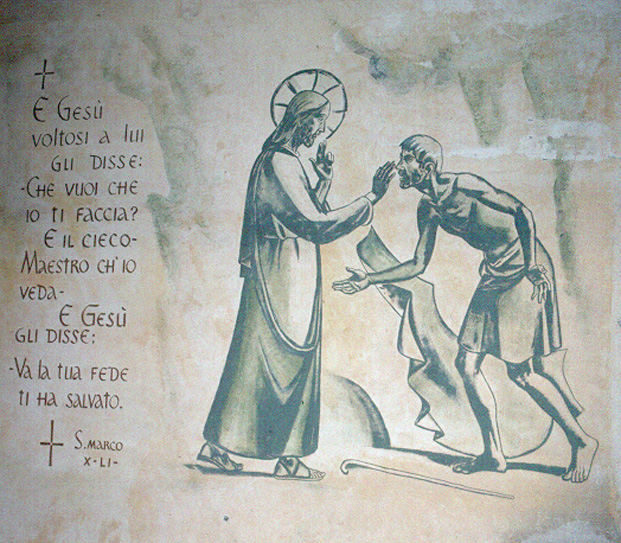 E GESÙ
VOLTOSI A LUI
GLI DISSE:
-CHE VUOI CHE
IO TI FACCIA?
E IL CIECO-
MAESTRO CH'IO
VEDA-
E GESÙ
GLI DISSE:
-VA LA TUA FEDE
TI HA SALVATO.
S. MARCO
X-LI-